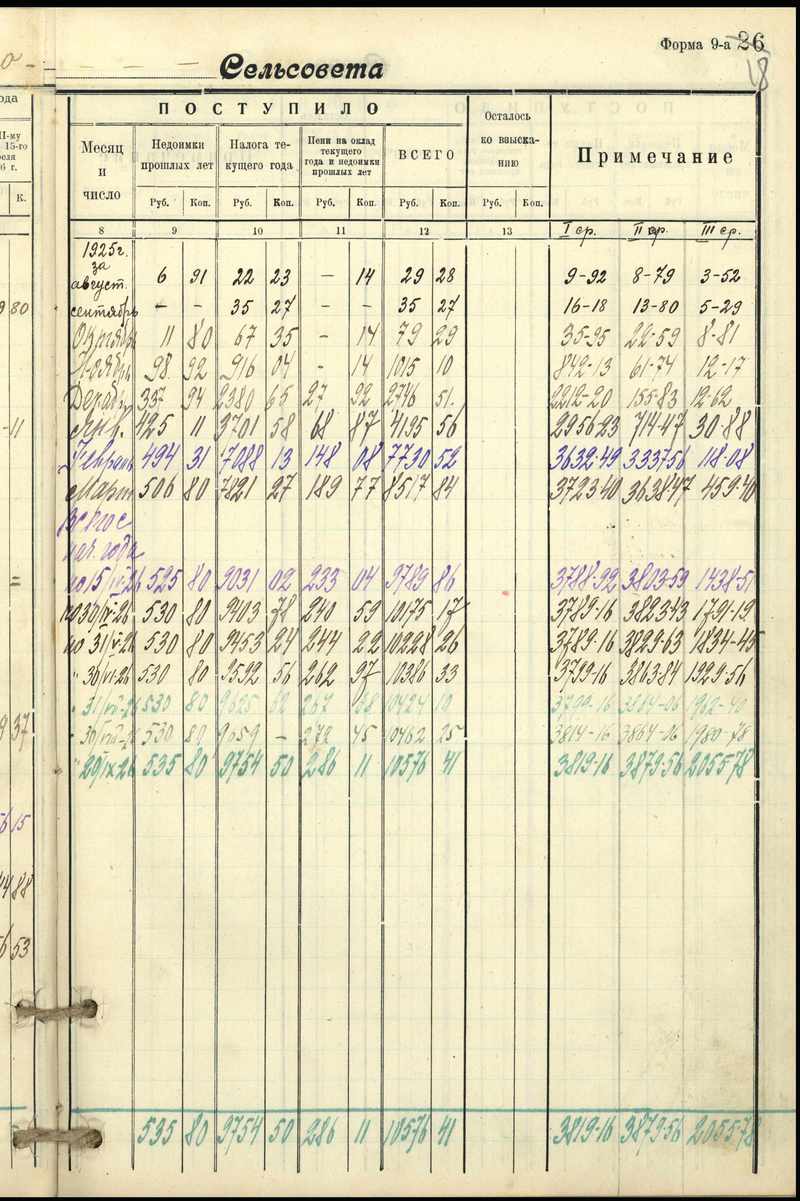 Форма 9-а 26
18
Сельсовета
ПОСТУПИЛО
Месяц и число
Недоимки прошлых лет
Налога текущего года
Пени на оклад текущего года и недоимки прошлых лет
ВСЕГО
Осталось ко взысканию
Примечание
Руб. Коп. Руб. Коп. Руб. Коп. Руб. Коп. Руб. Коп.
8 9 10 11 12 13 I ср. II ср. III ср.
1925г.
за
август. 6 91 22 23 — 14 29 28 9-92 8-79 3-52
сентябрь - - 35 27 - - 35 27 16-18 13-80 5-29
Октябрь 11 80 67 35 - 14 79 29 35-95 22-59 8-81
Ноябрь 98 92 916 04 - 14 1015 10 842-13 61-74 12-17
337 94 2380 65 27 92 2746 51. 2212-20 155-83 12-62
Янв. 425 11 3701 58 68 87 4195 56 2956 23 714-47 30-88
Февраль 494 31 7088 13 148 08 7730 52 3632-49 3337 56 118-08
Март 506 80 7821 27 189 77 8517 84 3723 40 3638 47 459-40
Всего с
нач. года
по 15/IV-26 525 80 9031 02 233 04 9789 86 3788-92 3803-59 1438-51
по 30/IV-26 530 80 9403 78 240 59 10175 17 3789-16 3823 43 1791-19
по 31/V-26 530 80 9453 24 244 22 10228 26 3789-16 3829-63 1834-45
" 30/VI-26 530 80 9592 56 262 97 10386 33 3799-16 3863-84 1929-56
" 31/VII-26 530 80 9625 267 10424 10 3799-16 3864-06 1962-40
" 30/VIII-26 530 80 - 272 45 10462 25 3814-16 3864-06 1980-78
" 29/IX 26 535 80 9754 50 286 11 10576 41 3819-16 3879-56 2055-78
535 80 9754 50 286 11 10576 41 3819-16 3879-56 2055-78